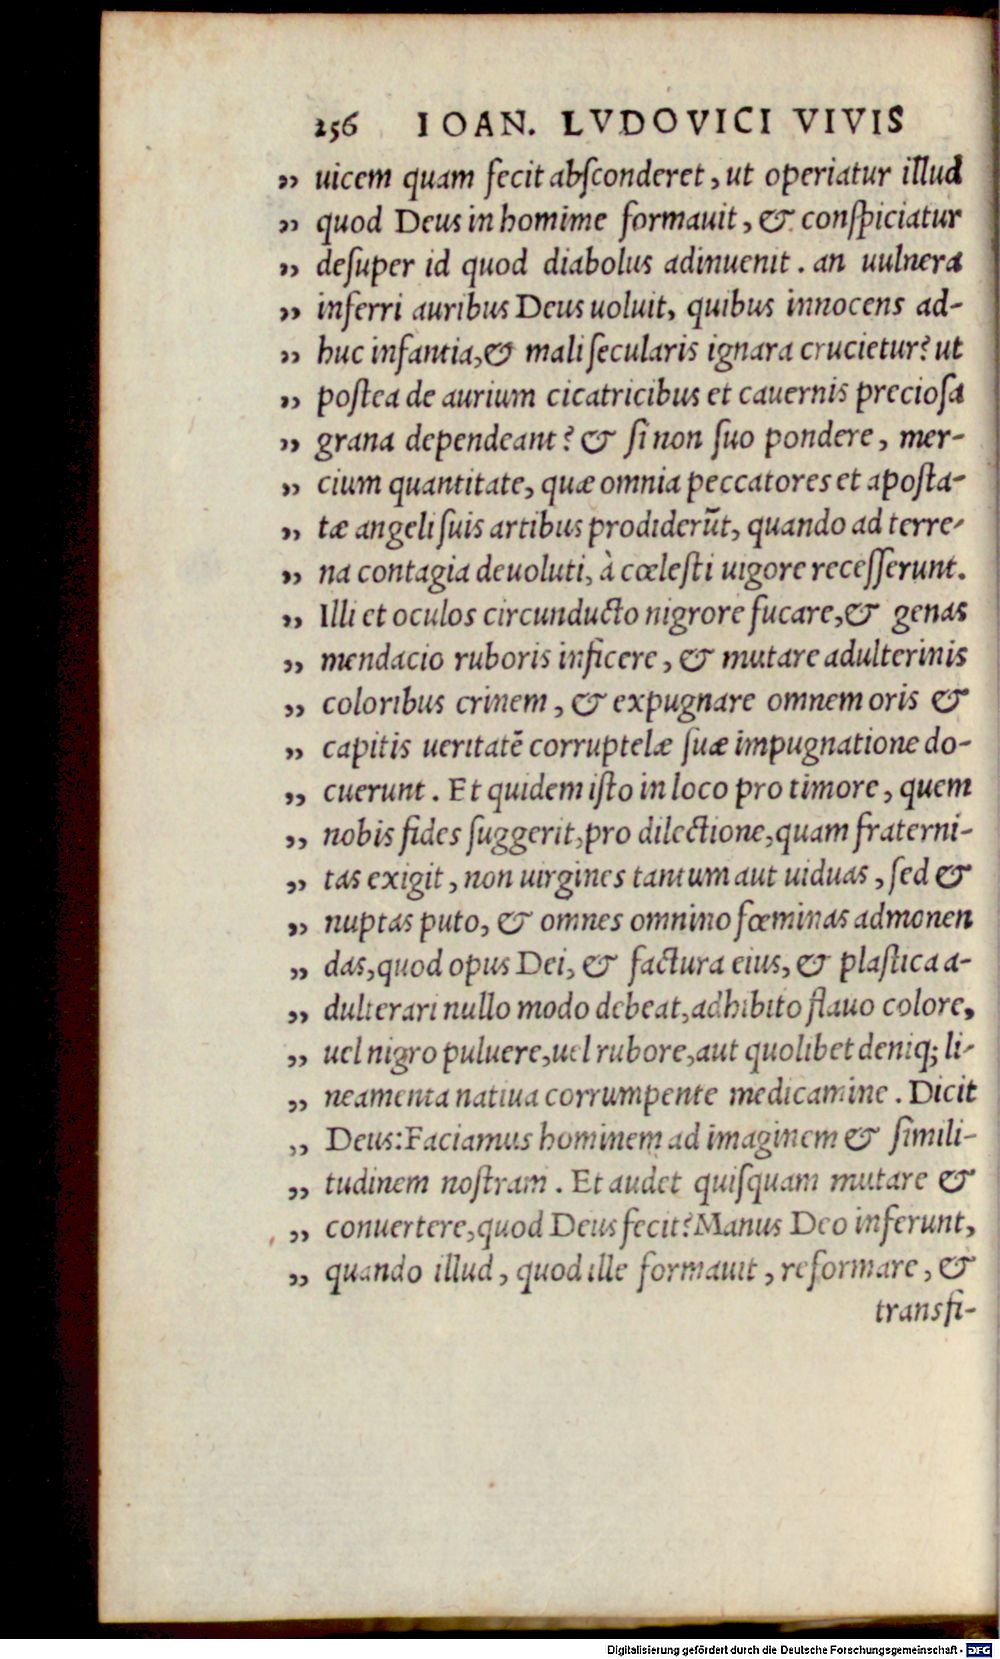 256 IOAN. LVDOVICI VIVIS
„ uicem quam fecit abſconderet, ut operiatur illud
„ quod Deus in homime formauit, & conſpiciatur
„ deſuper id quod diabolus adinuenit. an uulnera
„ inferri auribus Deus uoluit, quibus innocens ad-
„ huc infantia, & mali ſecularis ignara crucietur? ut
„ poſtea de aurium cicatricibus et cauernis precioſa
„ grana dependeant? & ſi non ſuo pondere, mer-
„ cium quantitate, quæ omnia peccatores et apoſta-
„ tæ angeli ſuis artibus prodiderūt, quando ad terre-
„ na contagia deuoluti, à cœleſti uigore receſſerunt.
„ Illi et oculos circunducto nigrore fucare, & genas
„ mendacio ruboris inficere, & mutare adulterinis
„ coloribus crinem, & expugnare omnem oris &
„ capitis ueritatē corruptelæ ſuæ impugnatione do-
„ cuerunt. Et quidem iſto in loco pro timore, quem
„ nobis fides ſuggerit, pro dilectione, quam fraterni-
„ tas exigit, non uirgines tantum aut uiduas, ſed &
„ nuptas puto, & omnes omnino fœminas admonen
„ das, quod opus Dei, & factura eius, & plaſtica a-
„ dulterari nullo modo debeat, adhibito flauo colore,
„ uel nigro puluere, uel rubore, aut quolibet deniq; li-
„ neamenta natiua corrumpente medicamine. Dicit
„ Deus: Faciamus hominem ad imaginem & ſimili-
„ tudinem noſtram. Et audet quiſquam mutare &
„ conuertere, quod Deus fecit? Manus Deo inferunt,
„ quando illud, quod ille formauit, reformare, &
transfi-
Digitalisierung gefördert durch die Deutsche Forschungsgemeinschaft - DFG